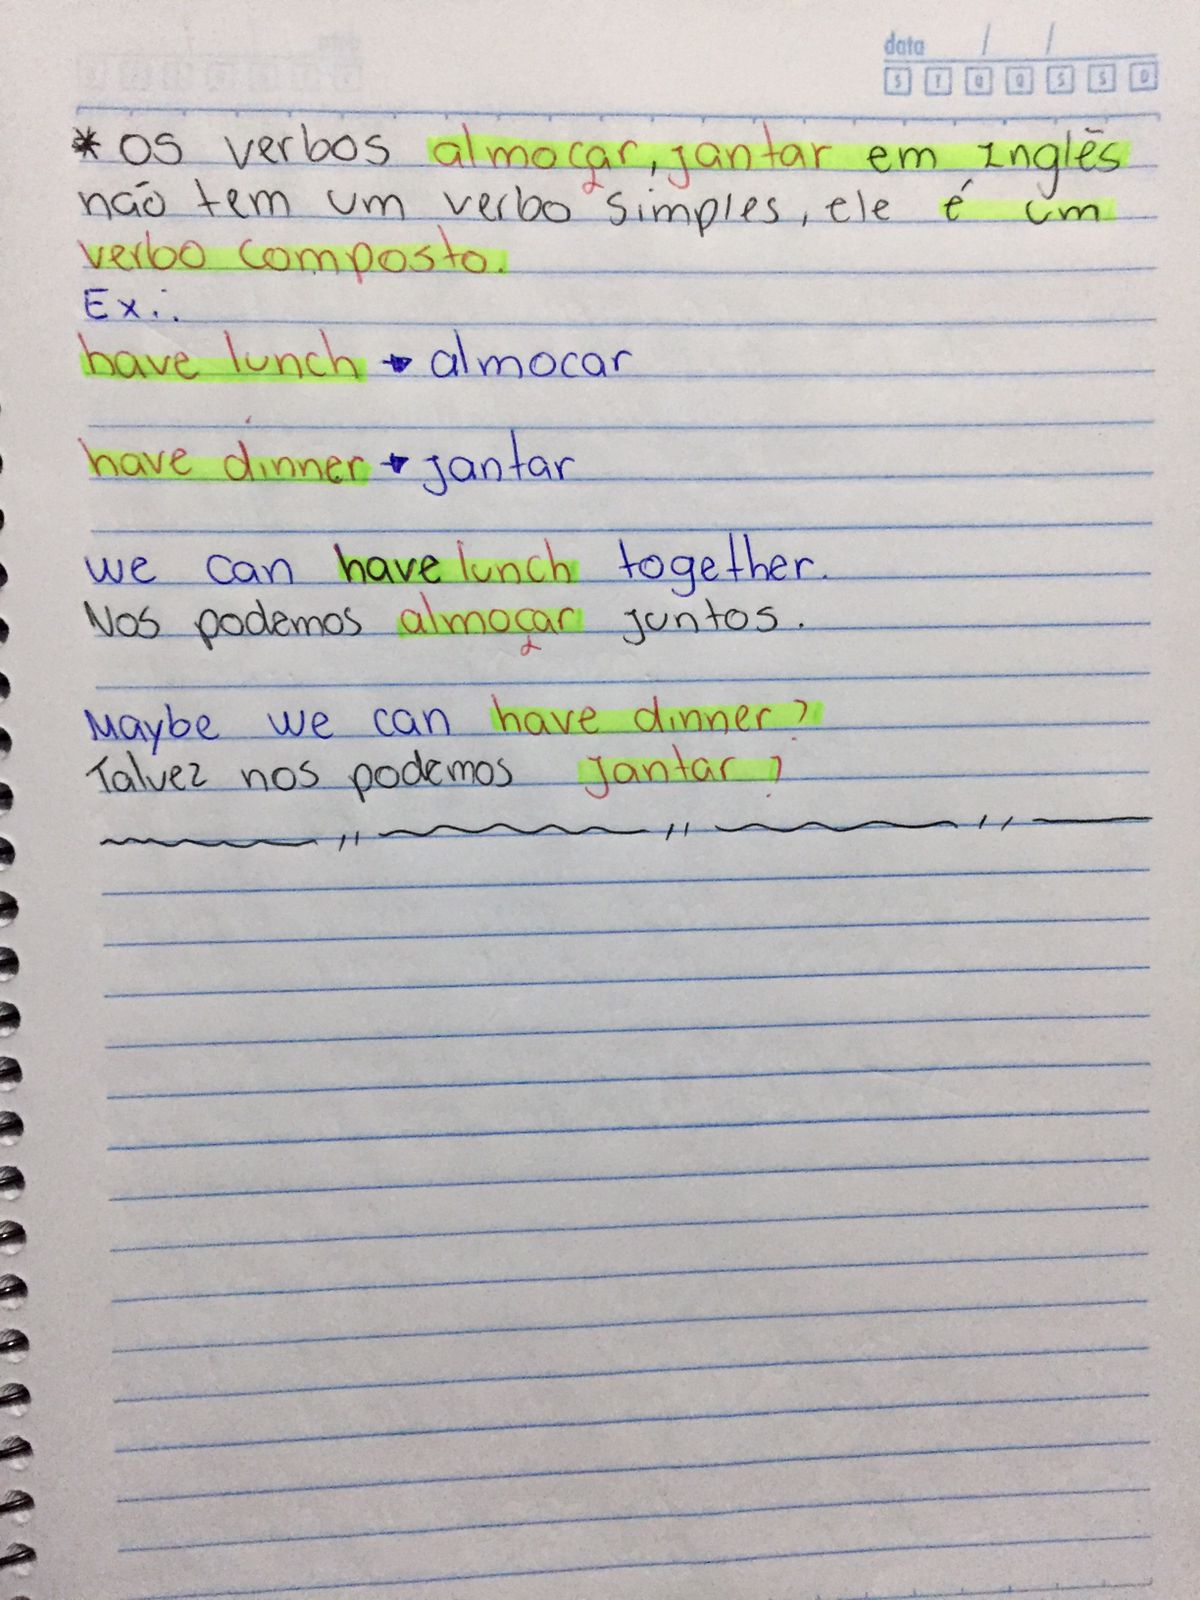 data / /
S T Q Q S S D
* Os verbos almoçar, jantar em Inglês
não tem um verbo simples, ele é um
verbo composto.
Ex.:
have lunch → almocar
have dinner → jantar
we can have lunch together.
Nos podemos almoçar juntos.
Maybe we can have dinner?
Talvez nos podemos jantar?